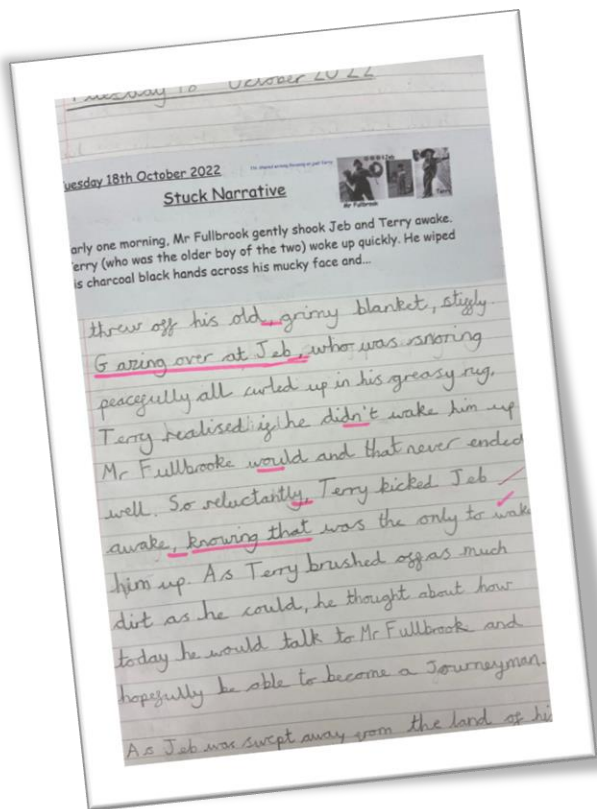 Tuesday 18 October 2022
uesday 18th October 2022
Stuck Narrative
Mr Fullbrook
Terry
arly one morning, Mr Fullbrook gently shook Jeb and Terry awake.
erry (who was the older boy of the two) woke up quickly. He wiped
is charcoal black hands across his mucky face and...
threw off his old, grimy blanket, stiffly.
Gazing over at Jeb, who was snoring
peacefully all curled up in his greasy rug,
Terry realised if he didn't wake him up
Mr Fullbrooke would and that never ended
well. So reluctantly, Terry kicked Jeb
awake, knowing that was the only to wake
him up. As Terry brushed off as much
dirt as he could, he thought about how
today he would talk to Mr Fullbrook and
hopefully be able to become a Journeyman.
As Jeb was swept away from the land of hi